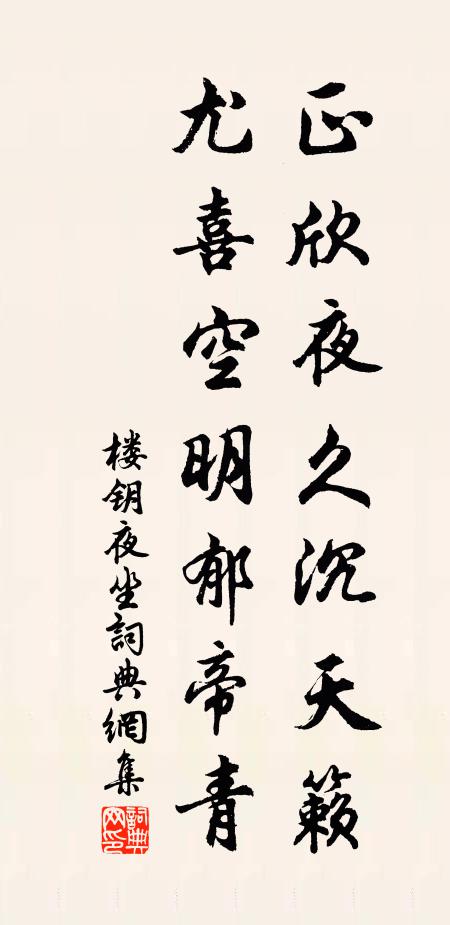 正欣夜久沉天籁
尤喜空明郁帝青
楼钥夜坐詞典網集
詞典
网印